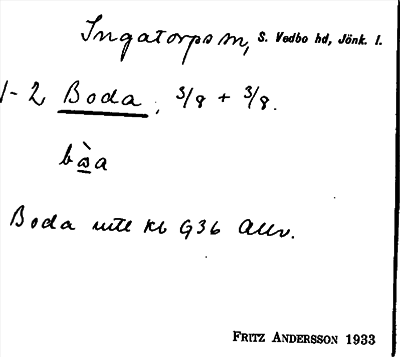 Ingatorps sn, S. Vedbo hd, Jönk. l.
1-2 Boda, 3/8 + 3/8.
Boda utte kb G36 Allv.
FRITZ ANDERSSON 1933